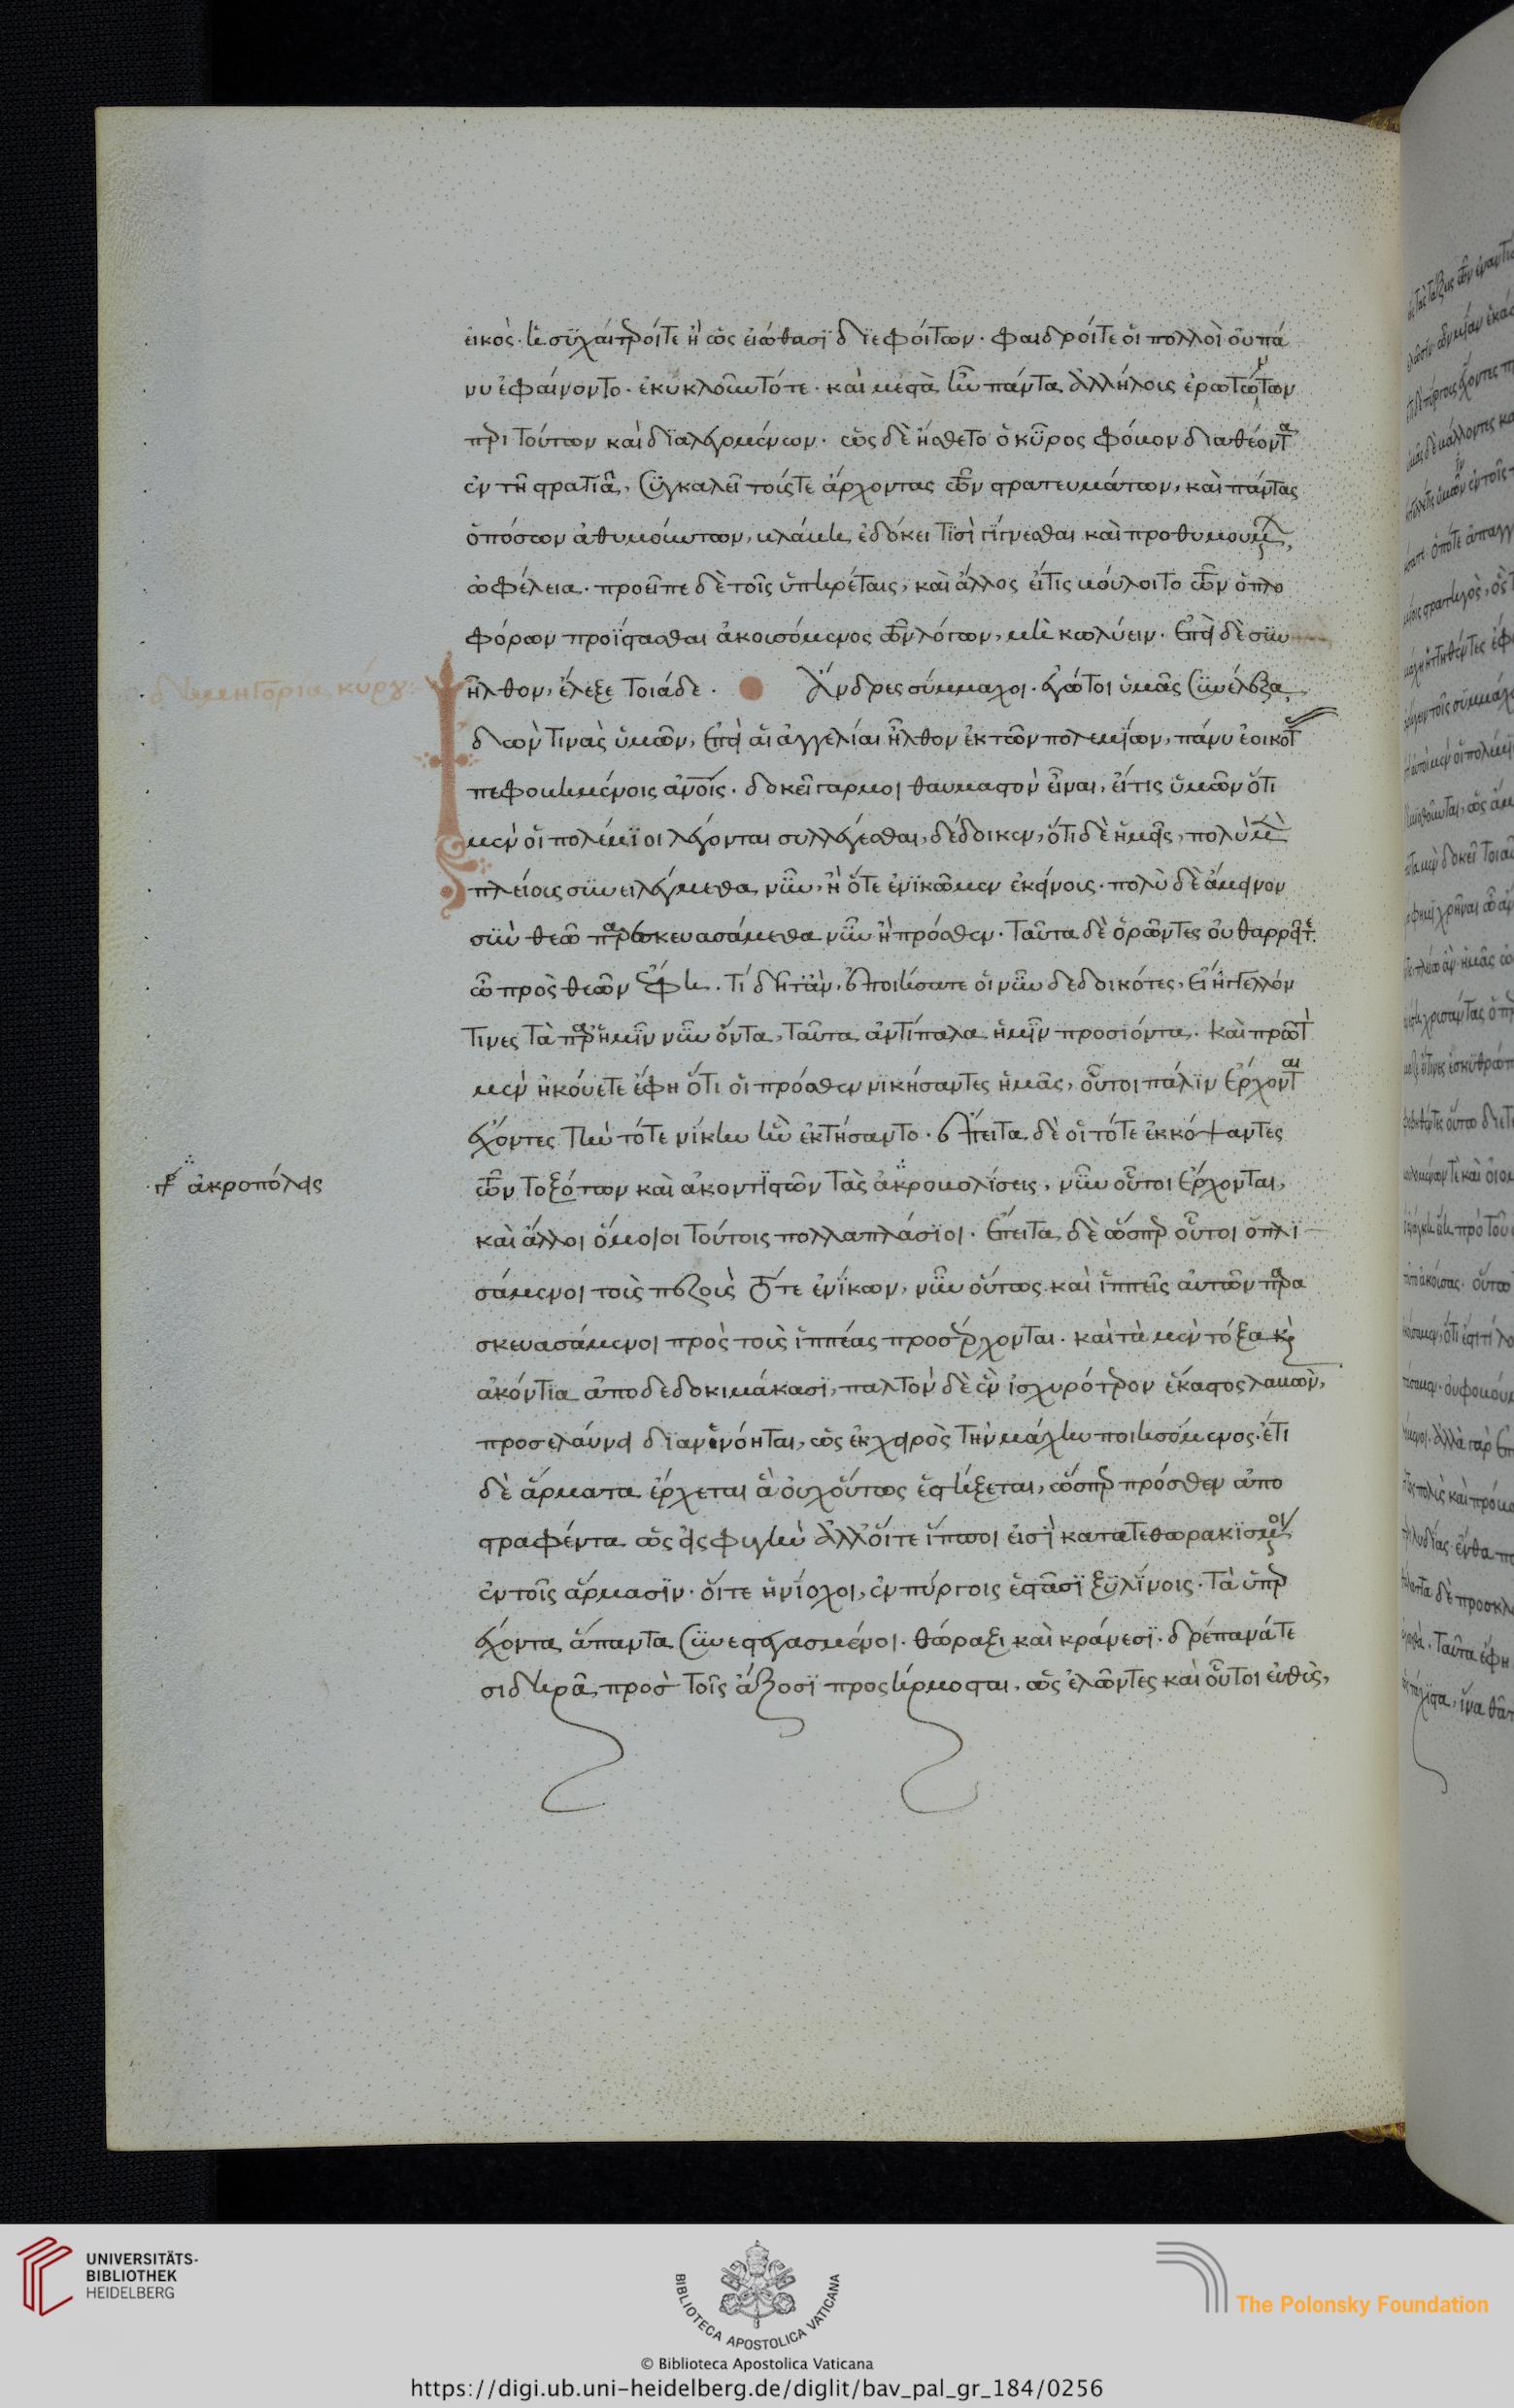 εἰκὸς. ἡσυχαίτεροί τε ἢ ὡς εἰώθασϊ διεφοίτων. φαιδροί τε οἱ πολλοὶ οὐ πά
νυ ἐφαίνοντο. ἐκυκλοῦντό τε. καὶ μεστὰ ἦν πάντα ἀλλήλοις ἐρωτώντων
περὶ τούτων καὶ διαλεγομένων. ὡς δὲ ἤσθετο ὁ κῦρος φόβον διαθέοντα
ἐν τῇ στρατιᾷ, συγκαλεῖ τούς τε ἄρχοντας τῶν στρατευμάτων, καὶ πάντας
ὁπόσων ἀθυμούντων, βλάβη ἐδόκει τισὶ γίγνεσθαι καὶ προθυμουμένων,
ὠφέλεια. προεῖπε δὲ τοῖς ὑπηρέταις, καὶ ἄλλος εἴτις βούλοιτο τῶν ὁπλο
φόρων προΐστασθαι ἀκουσόμενος τῶν λόγων, μὴ κωλύειν. ἐπεὶ δὲ συν
ῆλθον, ἔλεξε τοιάδε. Ἄνδρες σύμμαχοι. ἐγώ τοι ὑμᾶς συνέλεξα,
δημηγορία κύρου:
ἰδὼν τινὰς ὑμῶν, ἐπεὶ αἱ ἀγγελίαι ἦλθον ἐκ τῶν πολεμίων, πάνυ ἐοικότας
πεφοβημένοις ἀνοῖς. δοκεῖ γαρ μοι θαυμαστὸν εἶναι, εἴ τις ὑμῶν ὅτι
μὲν οἱ πολέμιοι λέγονται συλλέγεσθαι, δέδοικεν, ὅτι δὲ ἡμεῖς, πολὺ μὲν
πλείοις συνειλέγμεθα νῦν, ἢ ὅτε ἐνικῶμεν ἐκείνοις. πολὺ δὲ ἄμεινον
σὺν θεῶ παρεσκευασάμεθα νῦν ἢ πρόσθεν. ταῦτα δὲ ὁρῶντες οὐ θαρρεῖτε.
ὦ πρὸς θεῶν ἔφη. τί δῆτ ἂν, ἐποιήσατε οἱ νῦν δεδοικότες, εἰ ἤγγελλόν
τινες τὰ παρ ἡμῖν νῦν ὄντα, ταῦτα ἀντίπαλα ἡμῖν προσιόντα. καὶ πρῶτον
μὲν ἠκούετε ἔφη ὅτι οἱ πρόσθεν νικήσαντες ἡμᾶς, οὗτοι πάλιν ἔρχονται
ἔχοντες ἣν τότε νίκην ἦν ἐκτήσαντο. ἔπειτα δὲ οἱ τότε ἐκκόψαντες
τῶν τοξότων καὶ ἀκοντιστῶν τὰς ἀκροβολίσεις, νῦν οὗτοι ἔρχονται,
γρ ἀκροπόλεις
καὶ ἄλλοι ὅμοιοι τούτοις πολλαπλάσιοι. ἔπειτα δὲ ὥσπερ οὗτοι ὁπλι
σάμενοι τοὺς πεζοὺς τότε ἐνίκων, νῦν οὕτως καὶ ἱππεῖς αὐτῶν παρα
σκευασάμενοι πρὸς τοὺς ἱππέας προσέρχονται. καὶ τὰ μὲν τόξα καὶ
ἀκόντια ἀποδεδοκιμάκασϊ, παλτὸν δὲ ἓν ἰσχυρότερον ἕκαστος λαβὼν,
προσελαύνει διανενόηται, ὡς ἐκ χειρὸς τὴν μάχην ποιησόμενος. ἔτι
δὲ ἅρματα ἔρχεται ἃ οὐχ οὕτως ἑστήξεται, ὥσπερ πρόσθεν ἀπο
στραφέντα ὡς εἰς φυγὴν ἀλλ οἵ τε ἵπποι εἰσὶ κατατεθωρακισμένοι
ἐν τοῖς ἅρμασιν. οἵ τε ἡνίοχοι, ἐν πύργοις ἑστᾶσϊ ξυλίνοις. τὰ ὑπερ
έχοντα ἅπαντα συνεστεγασμένοι. θώραξι καὶ κράνεσϊ. δρέπανά τε
σιδηρᾶ, πρὸς τοῖς ἄξοσϊ προσήρμοσται, ὡς ἐλῶντες καὶ οὗτοι εὐθὺς,
UNIVERSITÄTS-
BIBLIOTHEK
HEIDELBERG
BIBLIOTECA APOSTOLICA VATICANA
The Polonsky Foundation
© Biblioteca Apostolica Vaticana
https://digi.ub.uni-heidelberg.de/diglit/bav_pal_gr_184/0256